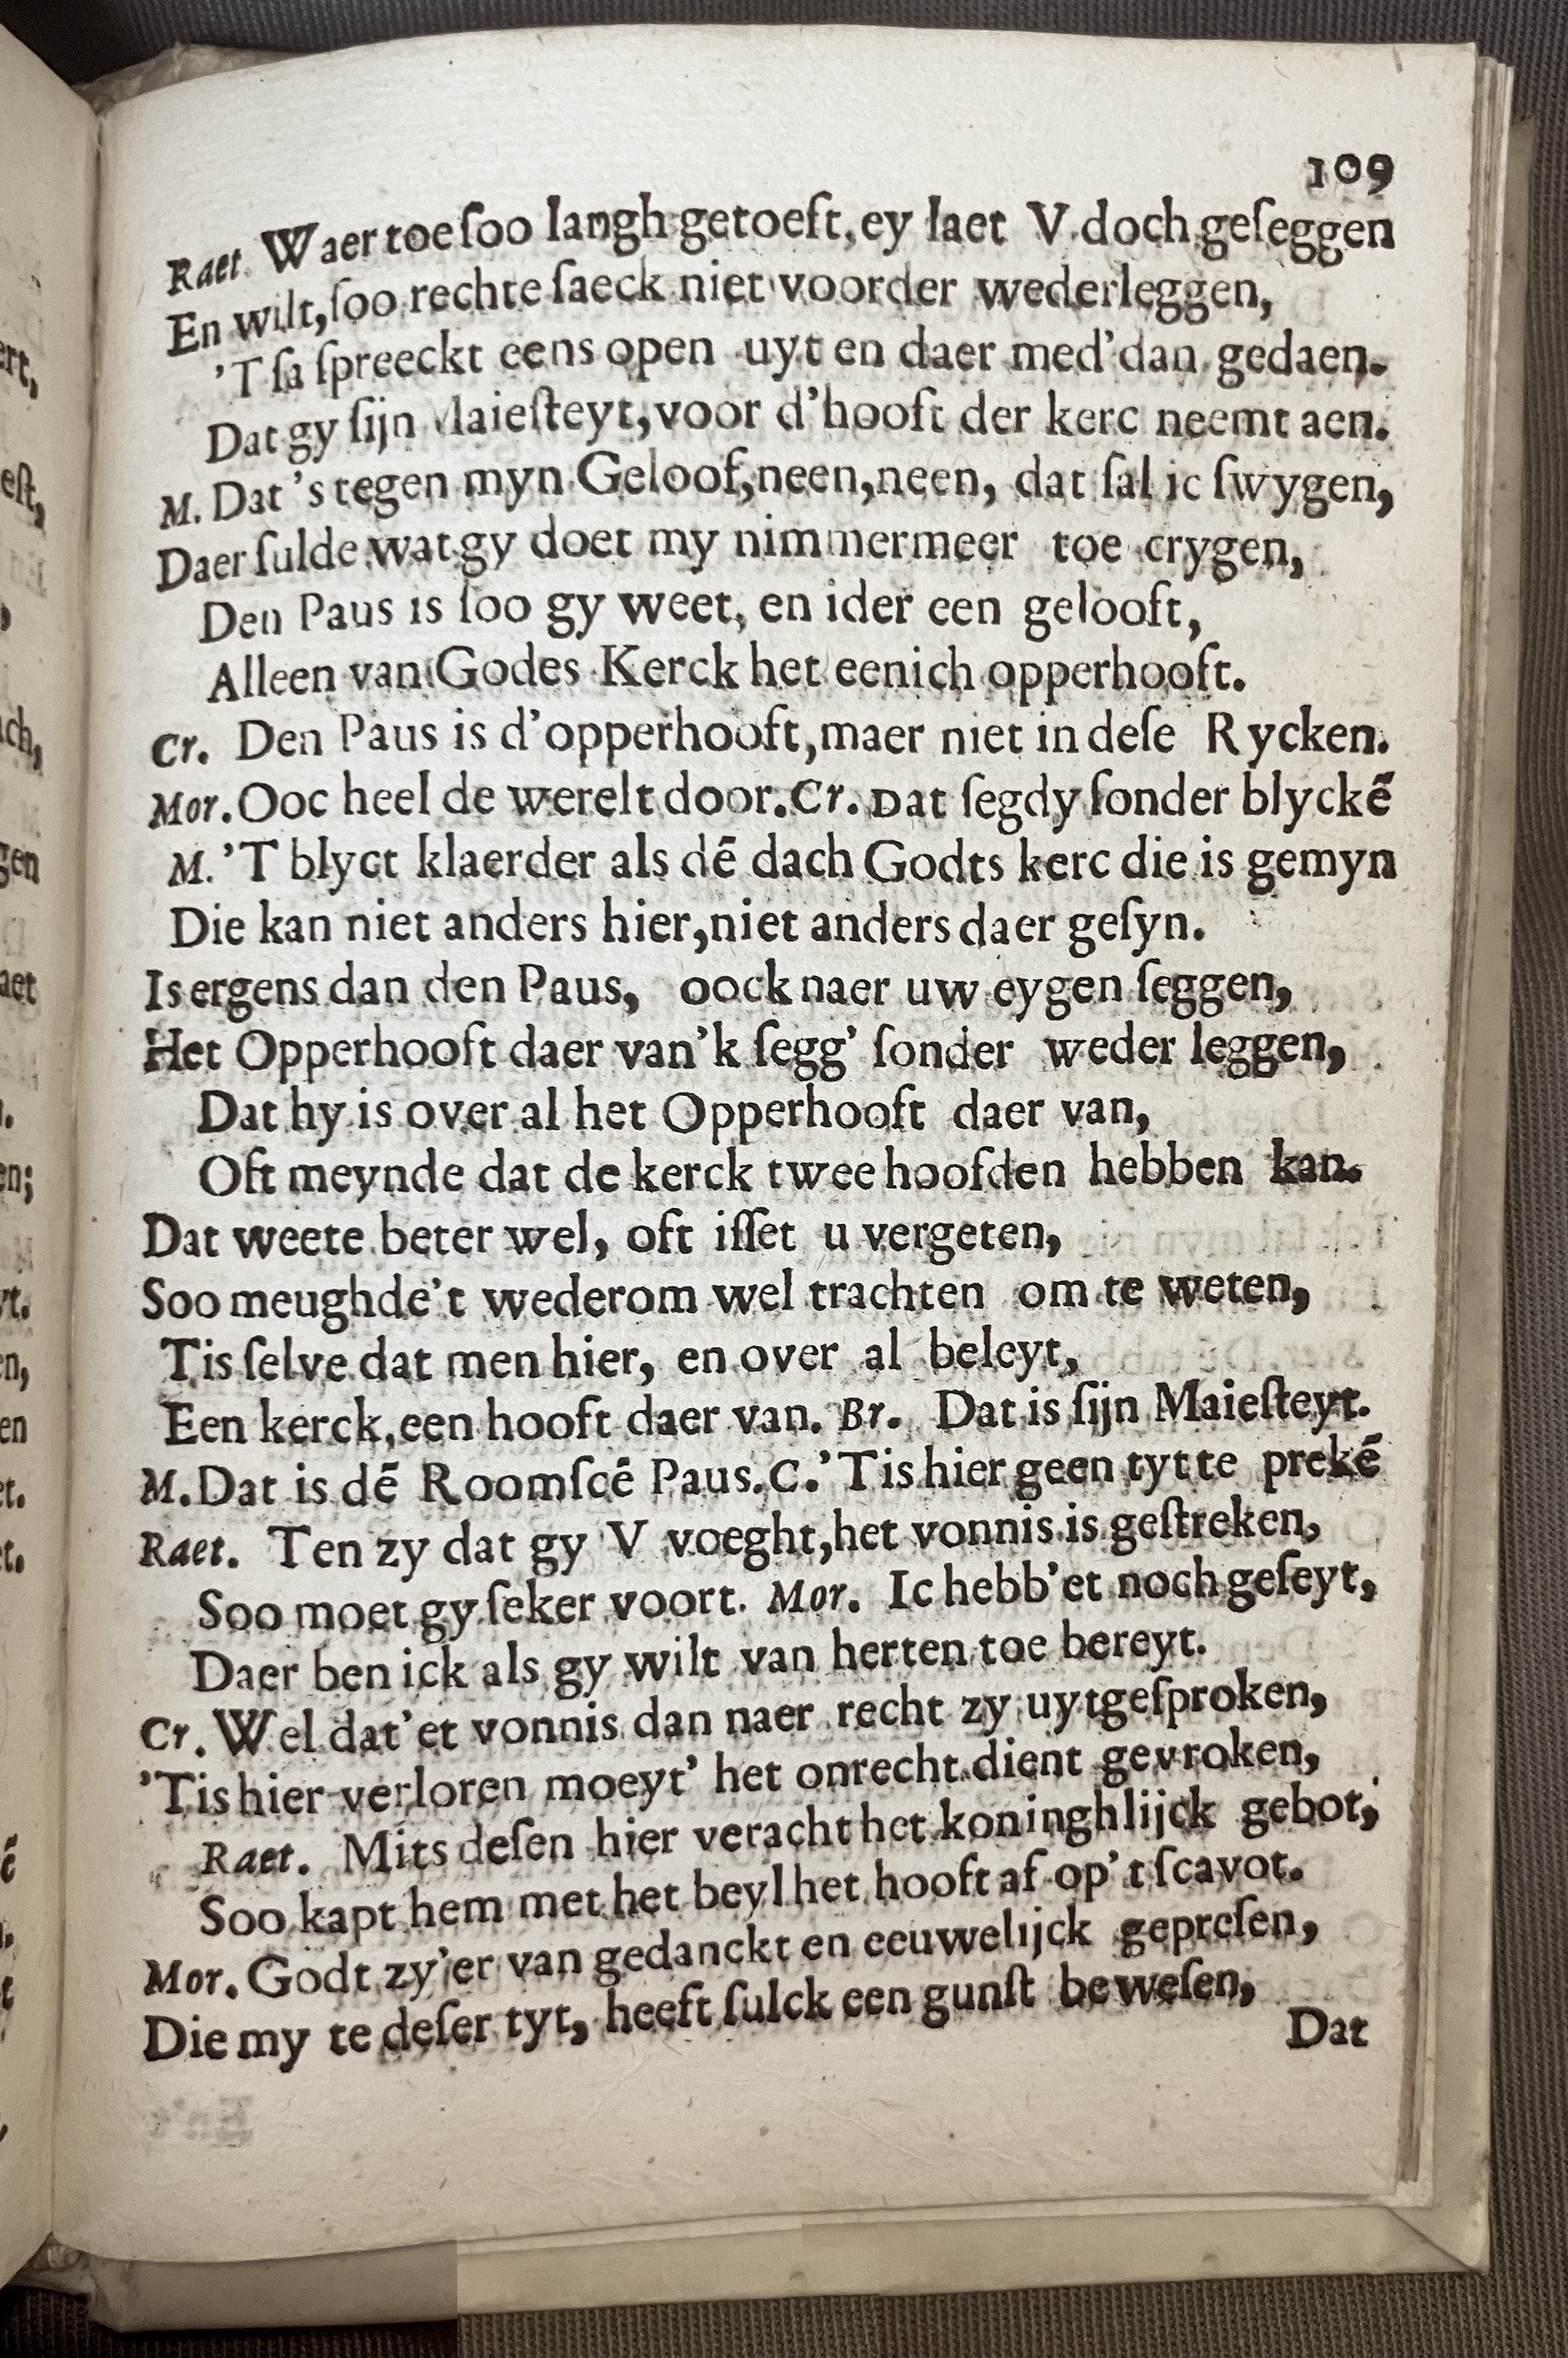 109
Raet. Waer toe ſoo langh getoeft, ey laet V doch geſeggen
En wilt, ſoo rechte ſaeck niet voorder wederleggen,
'T ſa ſpreeckt eens open uyt en daer med' dan gedaen.
Dat gy ſijn Maieſteyt, voor d'hooft der kerc neemt aen.
M. Dat 's tegen myn Geloof, neen, neen, dat ſal ic ſwygen,
Daer ſulde wat gy doet my nimmermeer toe crygen,
Den Paus is ſoo gy weet, en ider een gelooft,
Alleen van Godes Kerck het eenich opperhooft.
Cr. Den Paus is d'opperhooft, maer niet in deſe Rycken.
Mor. Ooc heel de werelt door. Cr. Dat ſegdy ſonder blyckē
M. 'T blyct klaerder als dē dach Godts kerc die is gemyn
Die kan niet anders hier, niet anders daer geſyn.
Is ergens dan den Paus, oock naer uw eygen ſeggen,
Het Opperhooft daer van 'k ſegg' ſonder weder leggen,
Dat hy is over al het Opperhooft daer van,
Oft meynde dat de kerck twee hoofden hebben kan.
Dat weete beter wel, oft iſſet u vergeten,
Soo meughde't wederom wel trachten om te weten,
Tis ſelve dat men hier, en over al beleyt,
Een kerck, een hooft daer van. Br. Dat is ſijn Maieſteyt.
M. Dat is dē Roomſcē Paus. C. 'Tis hier geen tyt te prekē
Raet. Ten zy dat gy V voeght, het vonnis is geſtreken,
Soo moet gy ſeker voort. Mor. Ic hebb'et noch geſeyt,
Daer ben ick als gy wilt van herten toe bereyt.
Cr. Wel dat'et vonnis dan naer recht zy uytgeſproken,
'Tis hier verloren moeyt' het onrecht dient gevroken,
Raet. Mits deſen hier veracht het koninghlijck gebot,
Soo kapt hem met het beyl het hooft af op't ſcavot.
Mor. Godt zy'er van gedanckt en eeuwelijck gepreſen,
Die my te deſer tyt, heeft ſulck een gunſt beweſen,
Dat